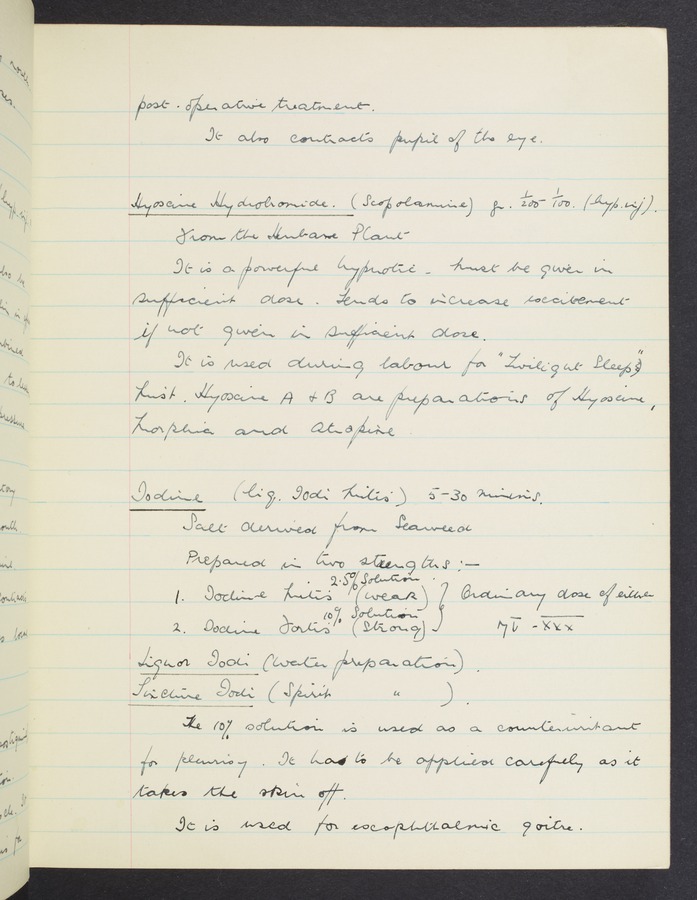 post-operative treatment.
It also contracts pupil of the eye.
Hyoscine Hydrobromide. (Scopolamine) gr. 1/200 - 1/100. (hyp. inj).
From the Henbane Plant
It is a powerful hypnotic - must be given in
sufficient dose. Tends to increase excitement
if not given in sufficient dose.
It is used during labour for "Twilight Sleep"
Mist. Hyoscine A + B are preparations of Hyoscine,
Morphia and Atropine
Iodine (Liq. Iodi Mitis) 5-30 minims.
Salt derived from Seaweed
Prepared in two strengths :-
2.5% Solution
1. Iodine Mitis (Weak) } Ordinary dose of either
10% Solution
2. Iodine Fortis (Strong) } ♏ V - XXX
Liquor Iodi (Water preparation).
Tincture Iodi (Spirit " ).
The 10% solution is used as a counterirritant
for pleurisy. It has to be applied carefully as it
takes the skin off.
It is used for exophthalmic goitre.